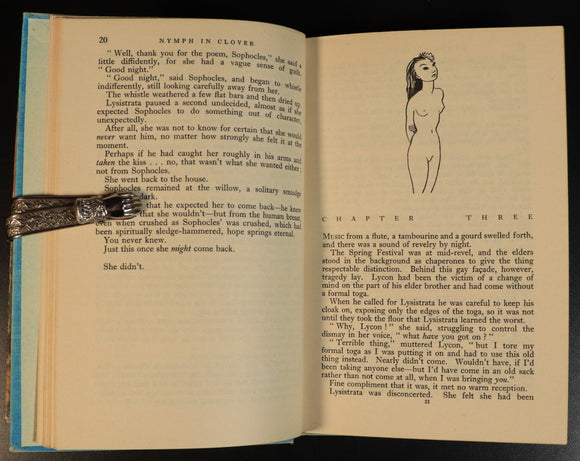 20 NYMPH IN CLOVER
" Well, thank you for the poem, Sophocles," she said a
little diffidently, for she had a vague sense of guilt.
" Good night."
" Good night," said Sophocles, and began to whistle
indifferently, still looking carefully away from her.
The whistle weathered a few flat bars and then dried up.
Lysistrata paused a second undecided, almost as if she
expected Sophocles to do something out of character,
unexpectedly.
After all, she was not to know for certain that she would
never want him, no matter how strongly she felt it at the
moment.
Perhaps if he had caught her roughly in his arms and
taken the kiss . . . no, that wasn't what she wanted either,
not from Sophocles.
She went back to the house.
Sophocles remained at the willow, a solitary smudge
dark.
that he expected her to come back—he knew
that she wouldn't—but from the human breast,
even when crushed as Sophocles' was crushed, which had
been spiritually sledge-hammered, hope springs eternal.
You never knew.
Just this once she might come back.
She didn't.
CHAPTER THREE
MUSIC from a flute, a tambourine and a gourd swelled forth,
and there was a sound of revelry by night.
The Spring Festival was at mid-revel, and the elders
stood in the background as chaperones to give the thing
respectable distinction. Behind this gay façade, however,
tragedy lay. Lycon had been the victim of a change of
mind on the part of his elder brother and had come without
a formal toga.
When he called for Lysistrata he was careful to keep his
cloak on, exposing only the edges of the toga, so it was not
until they took the floor that Lysistrata learned the worst.
" Why, Lycon ! " she said, struggling to control the
dismay in her voice, " what have you got on ? "
" Terrible thing," muttered Lycon, " but I tore my
formal toga as I was putting it on and had to use this old
thing instead. Nearly didn't come. Wouldn't have, if I'd
been taking anyone else—but I'd have come in an old sack
rather than not come at all, when I was bringing you."
Fine compliment that it was, it met no warm reception.
Lysistrata was disconcerted. She felt she had been
21